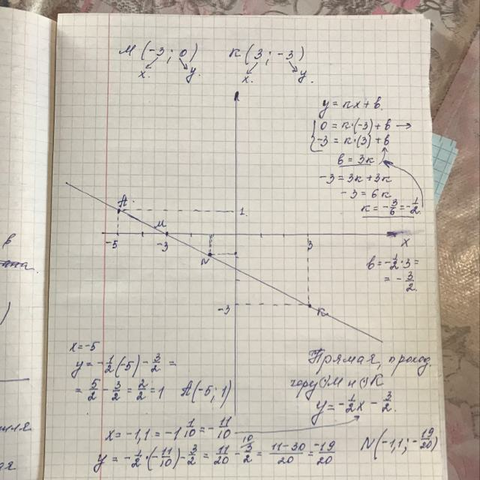 M(-3; 0) K(3; -3)
x. y. x. y.
y = kx + b.
{ 0 = k·(-3) + b →
-3 = k·(3) + b
b = 3k
-3 = 3k + 3k
-3 = 6k
k = -3/6 = -1/2
b = -1/2·3 =
= -3/2.
A 1
M x
-5 -3 3
N
-3 K
x = -5
y = -1/2(-5) - 3/2 =
= 5/2 - 3/2 = 2/2 = 1 A(-5; 1)
Прямая, проход.
через M и K
y = -1/2x - 3/2.
x = -1,1 = -1 1/10 = -11/10
y = -1/2·(-11/10) - 3/2 = 11/20 - 3/2 = 11-30/20 = -19/20 N(-1,1; -19/20)